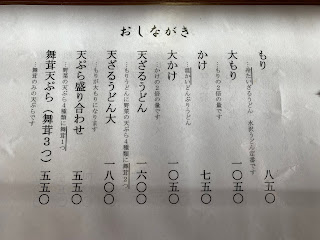 おしながき
もり 八五〇
…冷たいざるうどん 水沢うどん定番です
大もり 一〇五〇
…もりの2倍の量です
かけ 七五〇
…温かいどんぶりうどん
大かけ 一〇五〇
…かけの2倍の量です
天ざるうどん 一六〇〇
…もりうどんに野菜の天ぷら4種類に舞茸2つ
天ざるうどん大 一八〇〇
…もりが大もりになります
天ぷら盛り合わせ 五五〇
…野菜の天ぷら4種類に舞茸1つ
舞茸天ぷら（舞茸3つ） 五五〇
…舞茸のみの天ぷらです